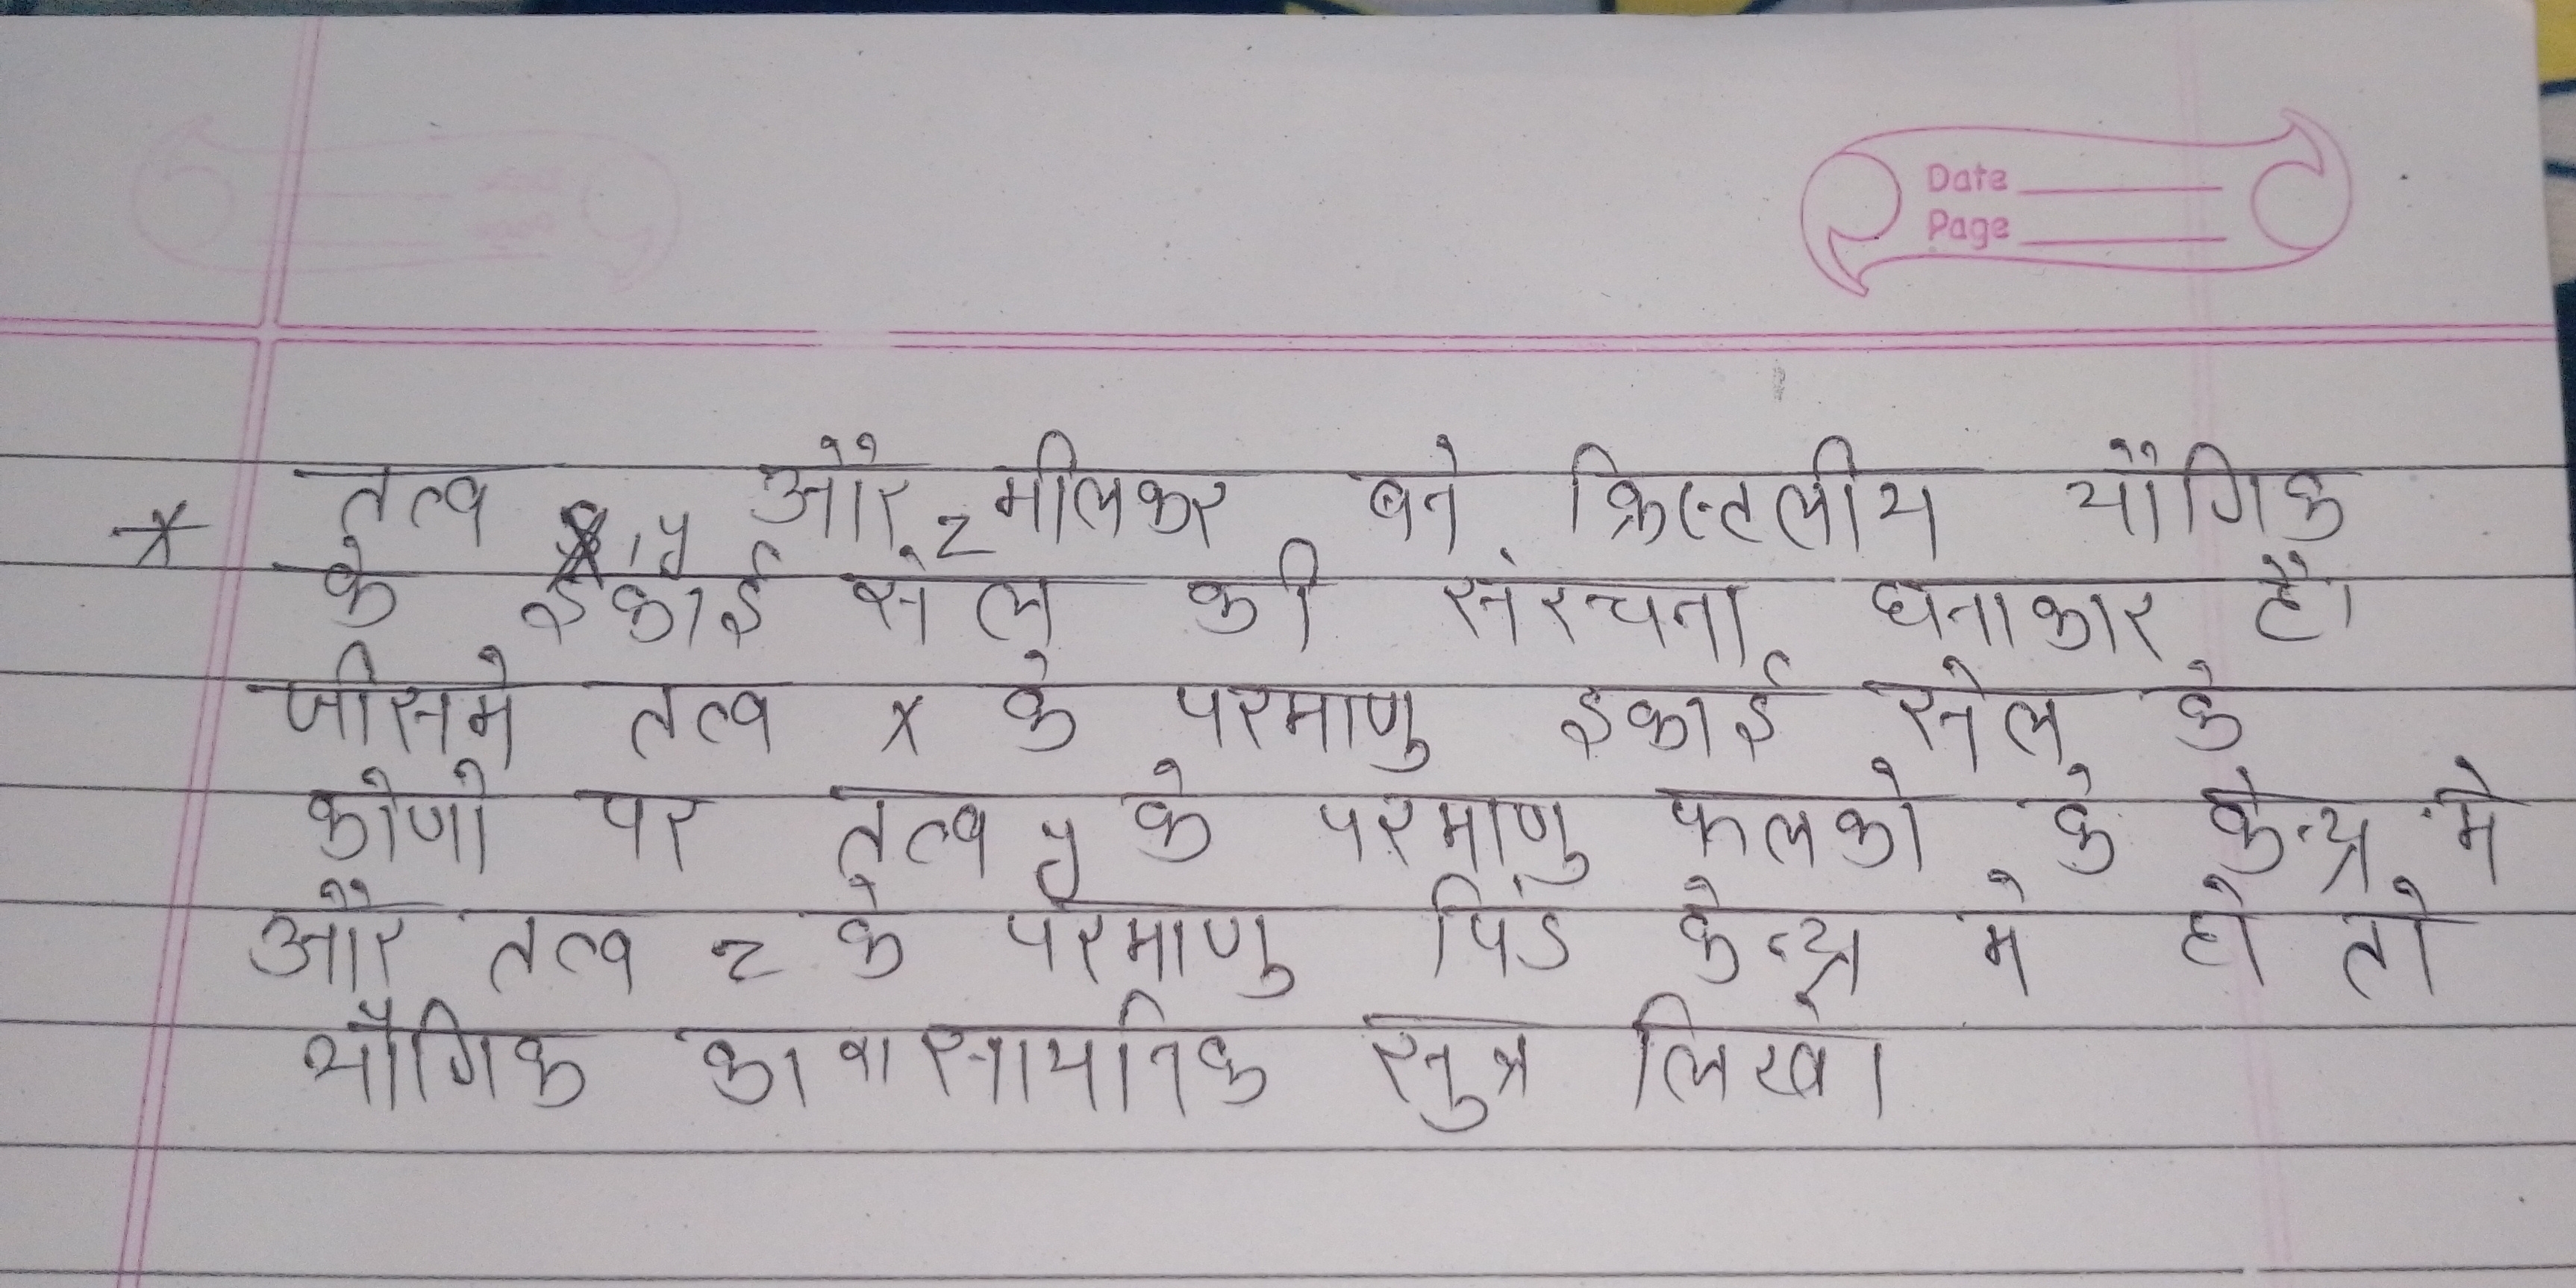 Date
Page
* तत्व x, y और z मीलकर बने क्रिस्टलीय यौगिक
के इकाई सेल की संरचना घनाकार है।
जीसमे तत्व x के परमाणु इकाई सेल के
कोणो पर तत्व y के परमाणु फलको के केन्द्र मे
और तत्व z के परमाणु पिंड केन्द्र मे हो तो
यौगिक का वासायनिक सुत्र लिखे।